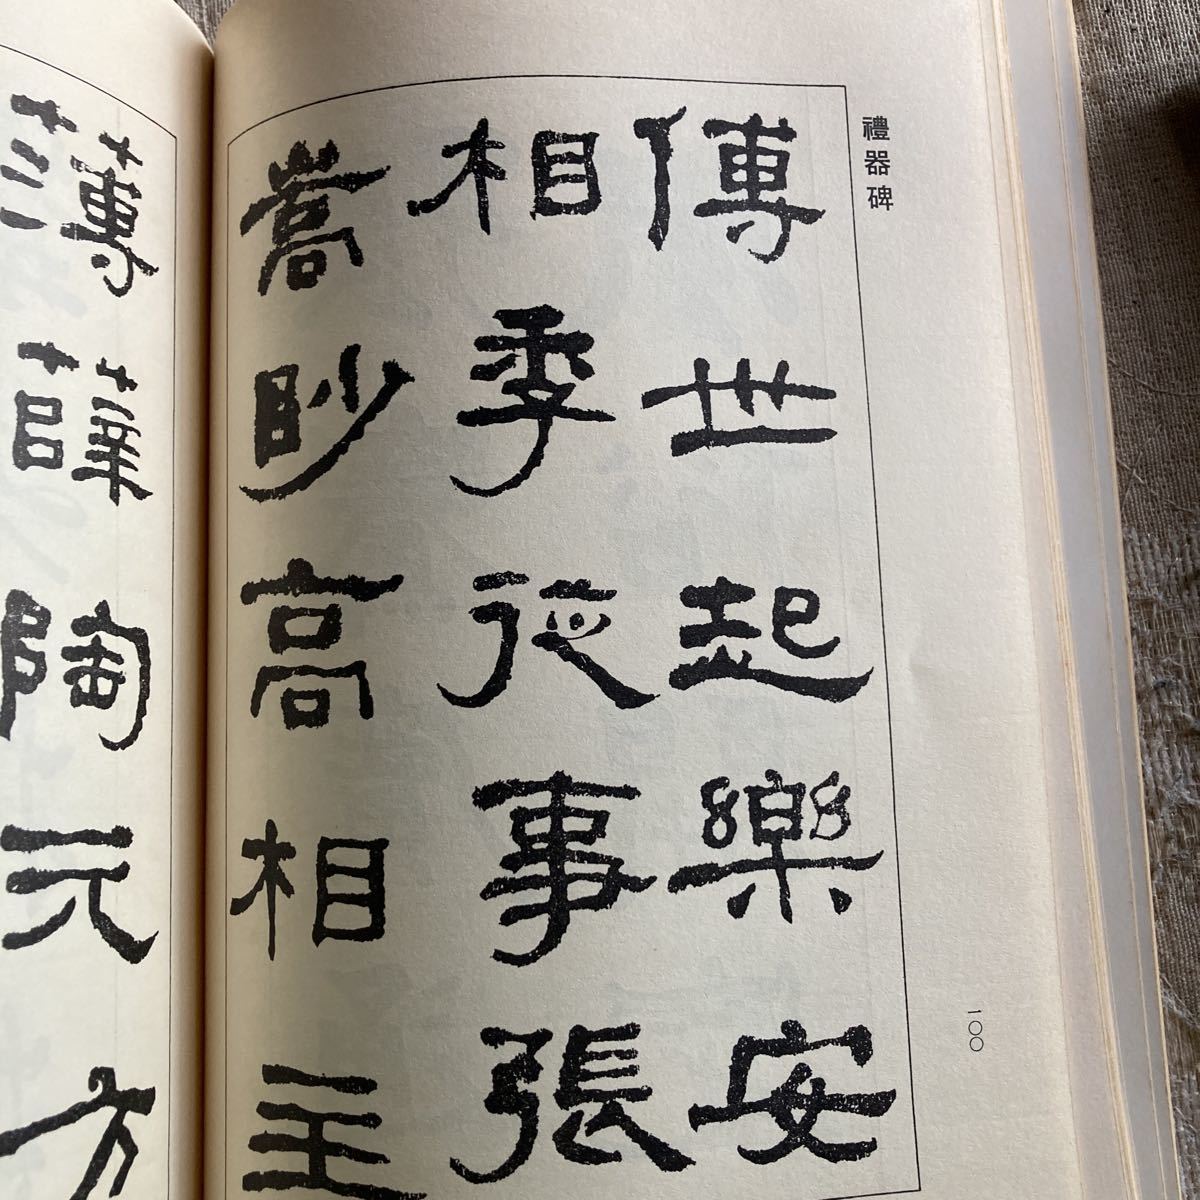 禮器碑
傅世起樂安
相季從事張
嵩眇高相主
薄薛陶元方
一〇〇